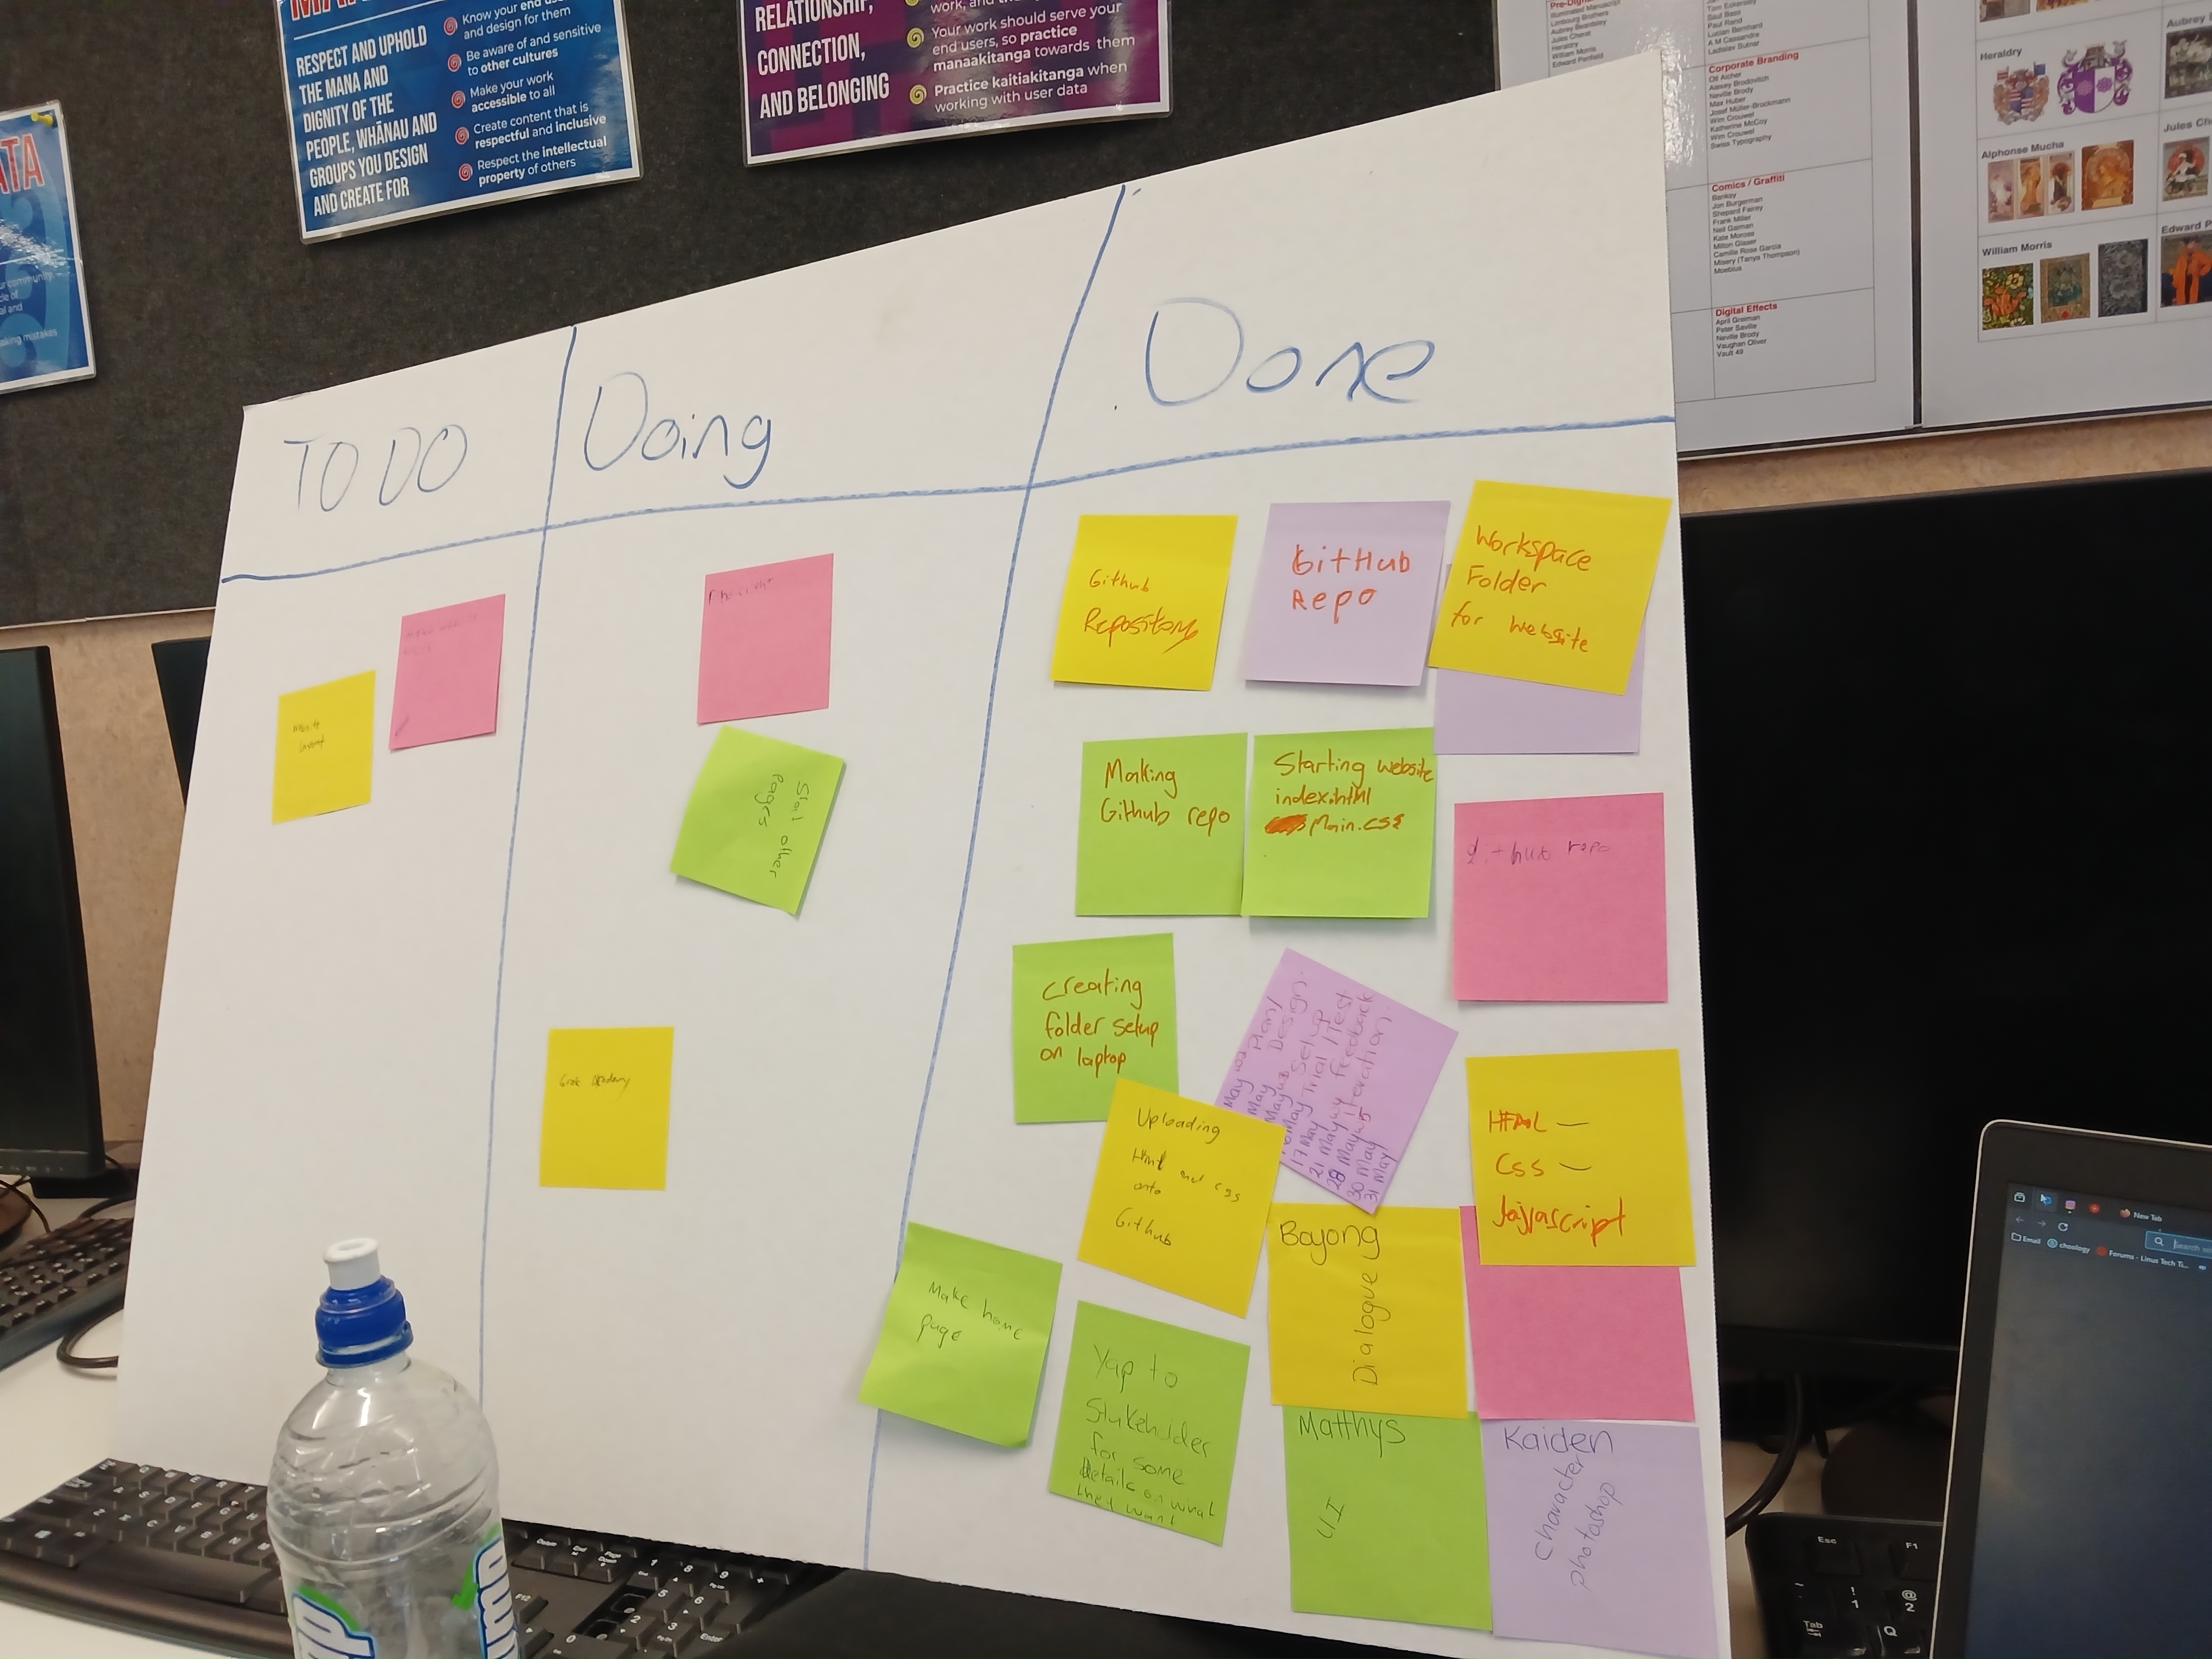 RESPECT AND UPHOLD
THE MANA AND
DIGNITY OF THE
PEOPLE, WHĀNAU AND
GROUPS YOU DESIGN
AND CREATE FOR
Know your end
and design for them
Be aware of and sensitive
to other cultures
Make your work
accessible to all
Create content that is
respectful and inclusive
Respect the intellectual
property of others
RELATIONSHIP,
CONNECTION,
AND BELONGING
work, and
Your work should serve your
end users, so practice
manaakitanga towards them
Practice kaitiakitanga when
working with user data
Illuminated Manuscript
Limbourg Brothers
Aubrey Beardsley
Jules Cheret
Heraldry
William Morris
Edward Penfield
Tom Eckersley
Saul Bass
Paul Rand
Lucian Bernhard
A M Cassandre
Ladislav Sutnar
Corporate Branding
Otl Aicher
Alexey Brodovitch
Neville Brody
Max Huber
Josef Müller-Brockmann
Wim Crouwel
Katherine McCoy
Wim Crouwel
Swiss Typography
Comics / Graffiti
Banksy
Jon Burgerman
Shepard Fairey
Frank Miller
Neil Gaiman
Kate Moross
Milton Glaser
Camille Rose Garcia
Misery (Tanya Thompson)
Moebius
Digital Effects
April Greiman
Peter Saville
Neville Brody
Vaughan Oliver
Vault 49
Heraldry
Aubrey
Alphonse Mucha
Jules
William Morris
Edward
TO DO
Doing
Start other
Pages
Done
Github
Repository
GitHub
Repo
Workspace
Folder
for website
Making
Github repo
Starting website
index.html
Main.css
github repo
Creating
folder setup
on laptop
May Plan/
May Design
May Set up
17 May Trial / Test
21 May Feedback
28 May iteration
30 May
31 May
Uploading
Html and css
onto
Github
HTML —
Css —
Javascript
Make home
page
Yap to
Stakeholder
for some
details on what
they want
Boyong
Dialogue
Matthys
UI
Kaiden
Character
photoshop
New Tab
Email
Forums - Linus Tech Ti...
Esc
F1
Tab
Q